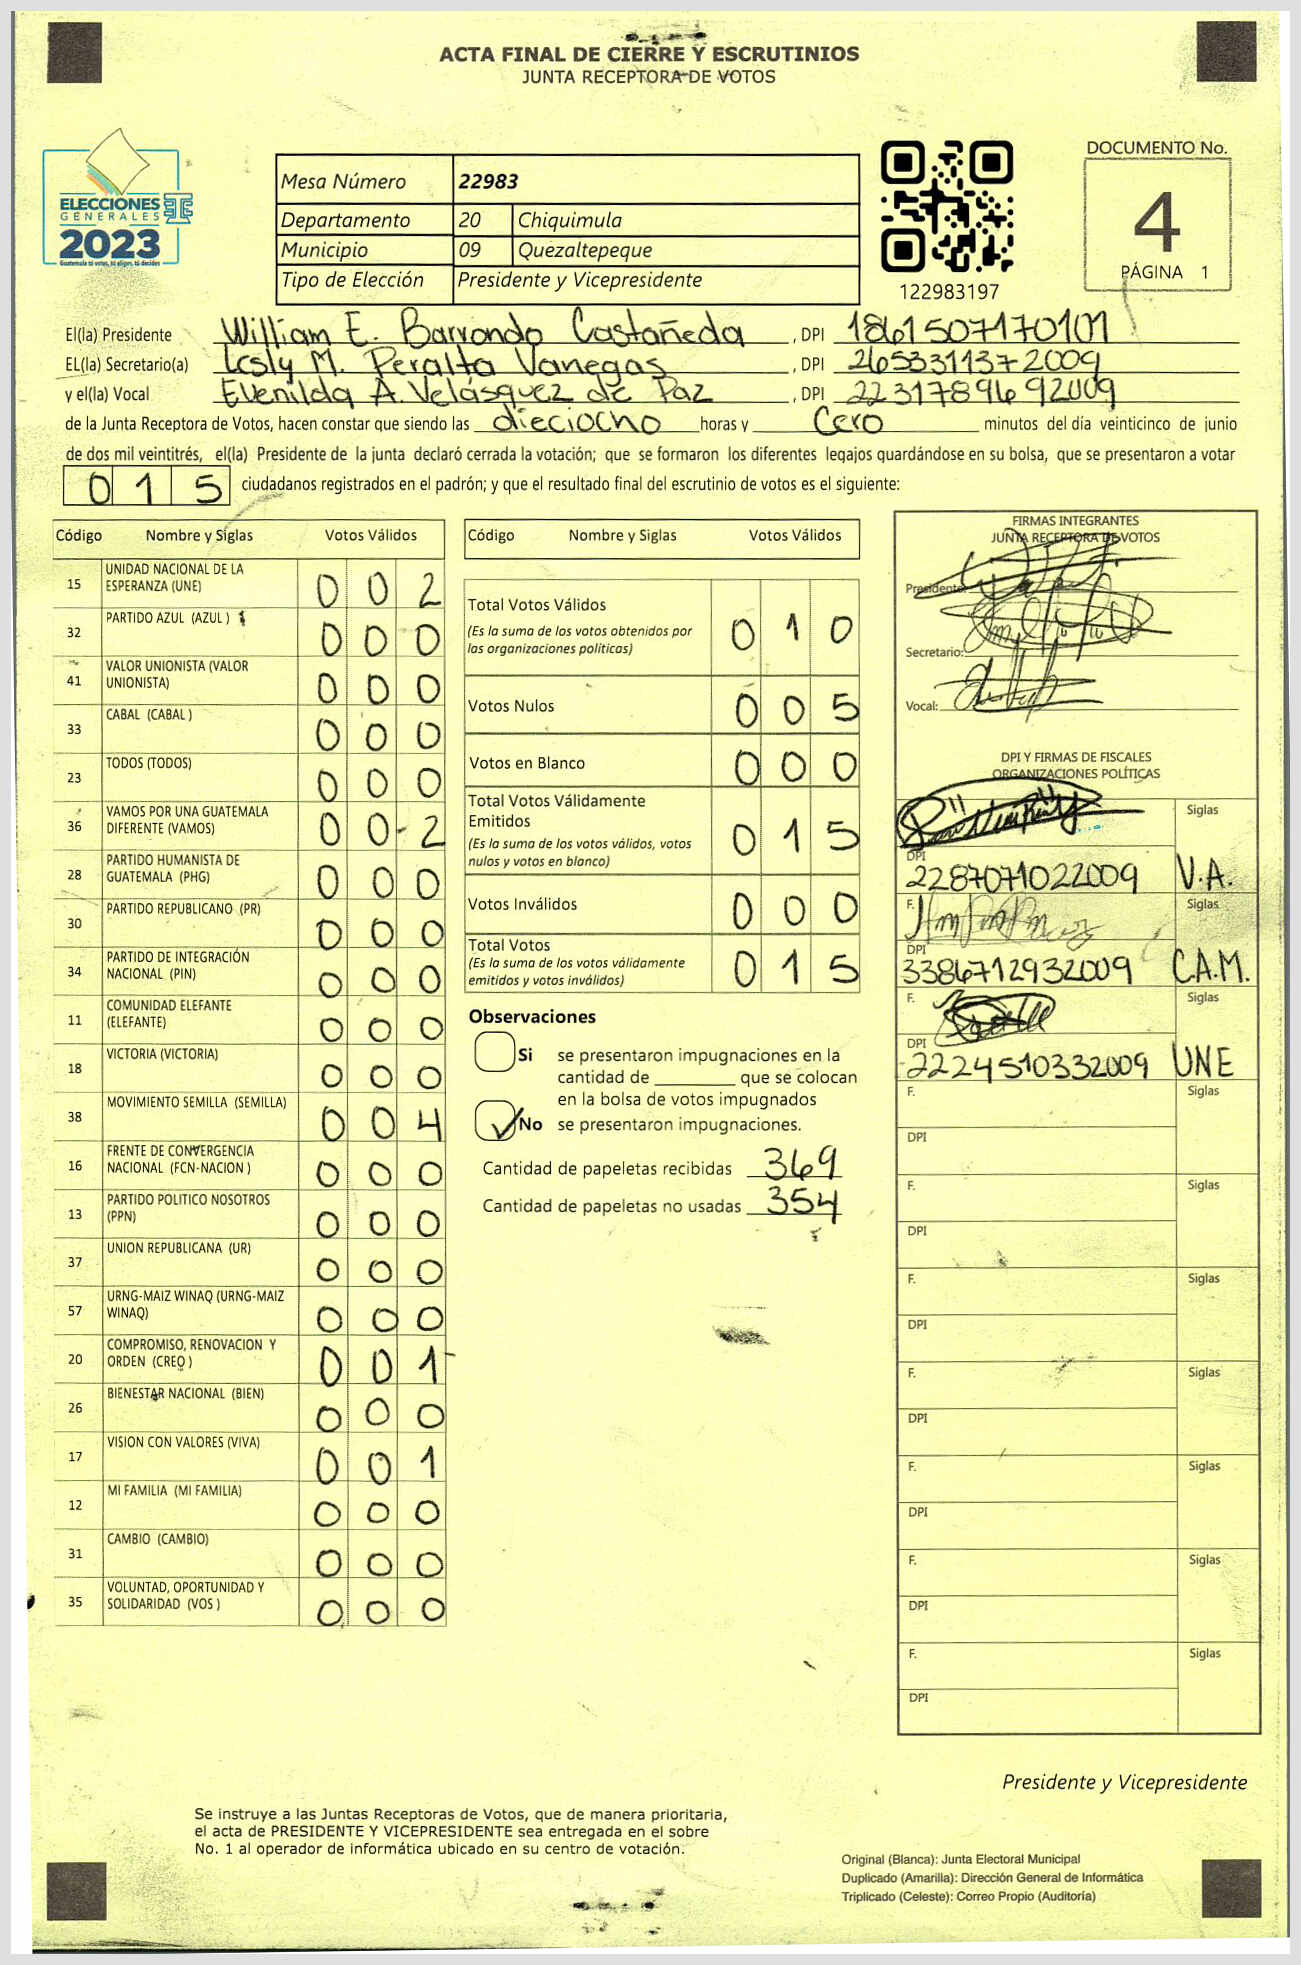 ACTA FINAL DE CIERRE Y ESCRUTINIOS
JUNTA RECEPTORA DE VOTOS
ELECCIONES
GENERALES
2023
Guatemala tú votas, tú eliges, tú decides
Mesa Número 22983
Departamento 20 Chiquimula
Municipio 09 Quezaltepeque
Tipo de Elección Presidente y Vicepresidente
122983197
DOCUMENTO No.
4
PÁGINA 1
El(la) Presidente William E. Barrondo Castañeda , DPI 1861507170101
EL(la) Secretario(a) Lesly M. Peralta Vanegas , DPI 2653311372009
y el(la) Vocal Evenilda A. Velásquez de Paz , DPI 2231789692009
de la Junta Receptora de Votos, hacen constar que siendo las dieciocho horas y Cero minutos del día veinticinco de junio
de dos mil veintitrés, el(la) Presidente de la junta declaró cerrada la votación; que se formaron los diferentes legajos quardándose en su bolsa, que se presentaron a votar
015 ciudadanos registrados en el padrón; y que el resultado final del escrutinio de votos es el siguiente:
Código Nombre y Siglas Votos Válidos
15 UNIDAD NACIONAL DE LA ESPERANZA (UNE) 002
32 PARTIDO AZUL (AZUL ) 000
41 VALOR UNIONISTA (VALOR UNIONISTA) 000
33 CABAL (CABAL ) 000
23 TODOS (TODOS) 000
36 VAMOS POR UNA GUATEMALA DIFERENTE (VAMOS) 002
28 PARTIDO HUMANISTA DE GUATEMALA (PHG) 000
30 PARTIDO REPUBLICANO (PR) 000
34 PARTIDO DE INTEGRACIÓN NACIONAL (PIN) 000
11 COMUNIDAD ELEFANTE (ELEFANTE) 000
18 VICTORIA (VICTORIA) 000
38 MOVIMIENTO SEMILLA (SEMILLA) 004
16 FRENTE DE CONVERGENCIA NACIONAL (FCN-NACION ) 000
13 PARTIDO POLITICO NOSOTROS (PPN) 000
37 UNION REPUBLICANA (UR) 000
57 URNG-MAIZ WINAQ (URNG-MAIZ WINAQ) 000
20 COMPROMISO, RENOVACION Y ORDEN (CREO ) 001
26 BIENESTAR NACIONAL (BIEN) 000
17 VISION CON VALORES (VIVA) 001
12 MI FAMILIA (MI FAMILIA) 000
31 CAMBIO (CAMBIO) 000
35 VOLUNTAD, OPORTUNIDAD Y SOLIDARIDAD (VOS ) 000
Código Nombre y Siglas Votos Válidos
Total Votos Válidos 010
(Es la suma de los votos obtenidos por
las organizaciones políticas)
Votos Nulos 005
Votos en Blanco 000
Total Votos Válidamente
Emitidos 015
(Es la suma de los votos válidos, votos
nulos y votos en blanco)
Votos Inválidos 000
Total Votos 015
(Es la suma de los votos válidamente
emitidos y votos inválidos)
Observaciones
Si se presentaron impugnaciones en la
cantidad de ________ que se colocan
en la bolsa de votos impugnados
No se presentaron impugnaciones.
Cantidad de papeletas recibidas 369
Cantidad de papeletas no usadas 354
FIRMAS INTEGRANTES
JUNTA RECEPTORA DE VOTOS
Presidente:
Secretario:
Vocal:
DPI Y FIRMAS DE FISCALES
ORGANIZACIONES POLÍTICAS
Siglas
DPI
2287071022009 V.A.
F. Siglas
DPI
3386712932009 C.A.M.
F. Siglas
DPI
2224510332009 UNE
F. Siglas
DPI
F. Siglas
DPI
F. Siglas
DPI
F. Siglas
DPI
F. Siglas
DPI
F. Siglas
DPI
F. Siglas
DPI
Presidente y Vicepresidente
Se instruye a las Juntas Receptoras de Votos, que de manera prioritaria,
el acta de PRESIDENTE Y VICEPRESIDENTE sea entregada en el sobre
No. 1 al operador de informática ubicado en su centro de votación.
Original (Blanca): Junta Electoral Municipal
Duplicado (Amarilla): Dirección General de Informática
Triplicado (Celeste): Correo Propio (Auditoría)